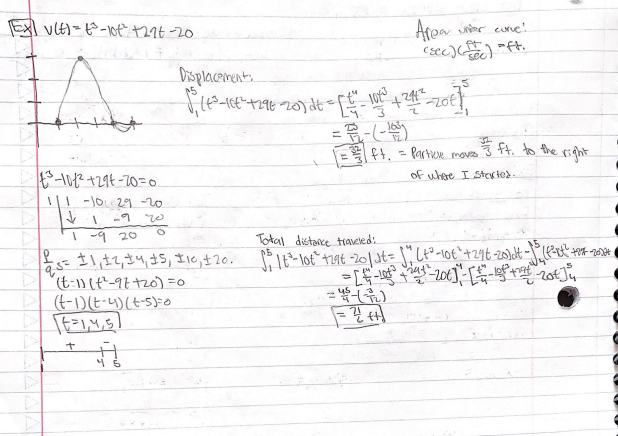 Ex v(t) = t³-10t²+29t-20
Area under curve:
(sec)(ft/sec) = ft.
Displacement:
∫₁⁵ (t³-10t²+29t-20) dt = [t⁴/4 - 10t³/3 + 29t²/2 - 20t]₁⁵
= 32/3 ft. = Particle moves 32/3 ft. to the right
of where I started.
t³-10t²+29t-20=0
1| 1 -10 29 -20
↓ 1 -9 20
1 -9 20 0
p/q's = ±1, ±2, ±4, ±5, ±10, ±20.
(t-1)(t²-9t+20)=0
(t-1)(t-4)(t-5)=0
t=1,4,5
+ -
4 5
Total distance traveled:
∫₁⁵ |t³-10t²+29t-20| dt = ∫₁⁴ (t³-10t²+29t-20) dt - ∫₄⁵ (t³-10t²+29t-20) dt
= [t⁴/4 - 10t³/3 + 29t²/2 - 20t]₁⁴ - [t⁴/4 - 10t³/3 + 29t²/2 - 20t]₄⁵
= 45/4 - (